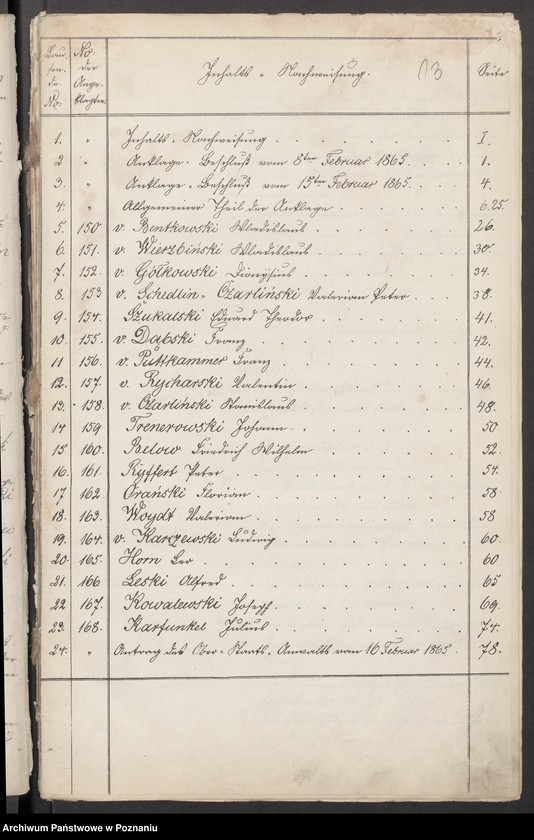 Lau-
fen-
de
No:
No:
der
Ange-
klagten
Inhalts-Nachweisung.
13
Seite
1. " Inhalts-Nachweisung I.
2 " Anklage-Beschluß vom 8ten Februar 1865. 1.
3. " Anklage-Beschluß vom 15ten Februar 1865. 4.
4. " Allgemeiner Theil der Anklage 6.25
5. 150 v. Bentkowski Wladislaus 26.
6. 151. v. Wierzbiński Wladislaus 30.
7. 152. v. Gółkowski Dionysius 34.
8. 153 v. Schedlin-Czarliński Valerian Peter 38.
9. 154. Szukalski Eduard Theodor 41.
10. 155. v. Dąbski Franz 42.
11 156. v. Puttkammer Franz 44.
12. 157. v. Rycharski Valentin 46.
13. 158. v. Czarliński Stanislaus 48.
14 159 Trenerowski Johann 50
15 160. Below Friedrich Wilhelm 52.
16. 161. Ryffert Peter 54.
17 162 Orański Florian 58.
18. 163. Woydt Valerian 58
19. 164. v. Karczewski Ludwig 60.
20. 165. Horn Leo 60
21. 166 Leski Alfred 65
22 167. Kowalewski Joseph 69.
23. 168. Karfunkel Julius 74.
24. " Antrag des Ober-Staats-Anwalts vom 16 Februar 1865. 78.
Archiwum Państwowe w Poznaniu